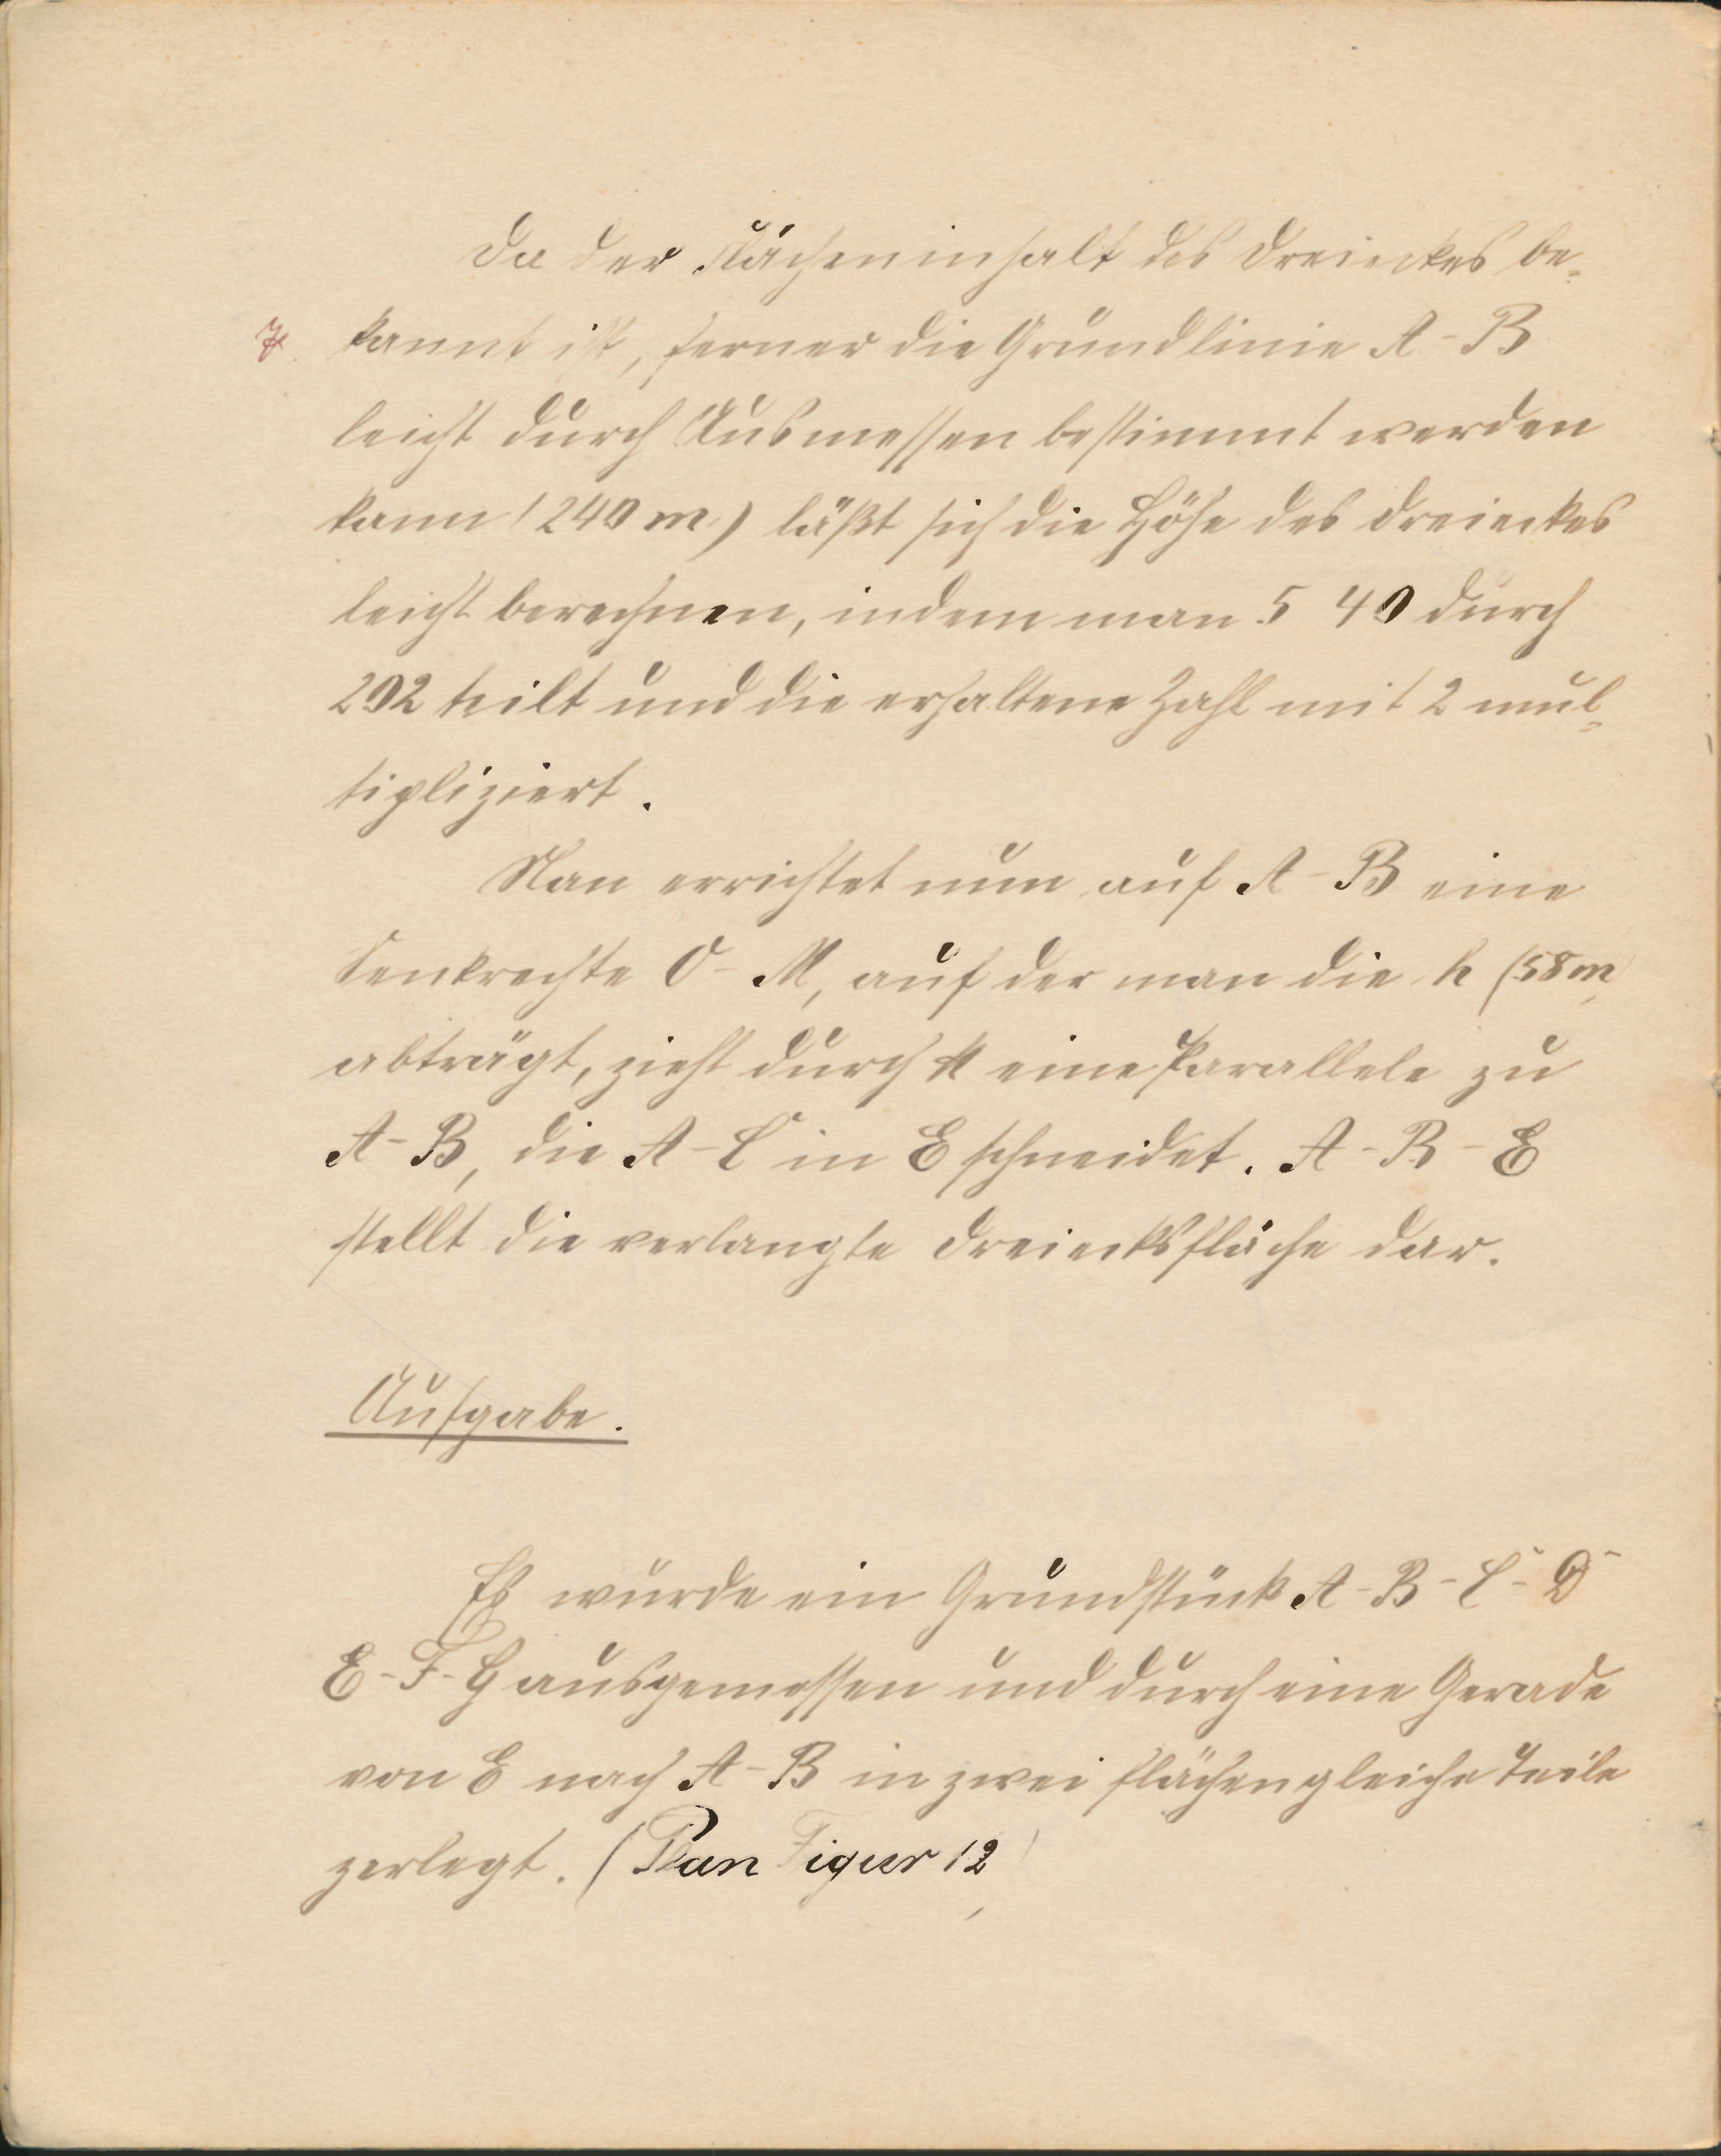 Da der Flächeninhalt des Dreieckes be-
kannt ist, ferner die Grundlinie A-B
leicht durch Ausmessen bestimmt werden
kann (240 m) läßt sich die Höhe des Dreieckes
leicht berechnen, indem man 5 40 durch
202 teilt und die erhaltene Zahl mit 2 mul-
tipliziert.
Man errichtet nun auf A-B eine
Senkrechte O-M, auf der man die h (58 m)
abträgt, zieht durch M eine Parallele zu
A-B, die A-C in E schneidet. A-B-E
stellt die verlangte Dreiecksfläche dar.
Aufgabe.
Es wurde ein Grundstück A-B-C-D-
E-F-G ausgemessen und durch eine Gerade
von E nach A-B in zwei flächengleiche Teile
zerlegt. (Plan Figur 12)